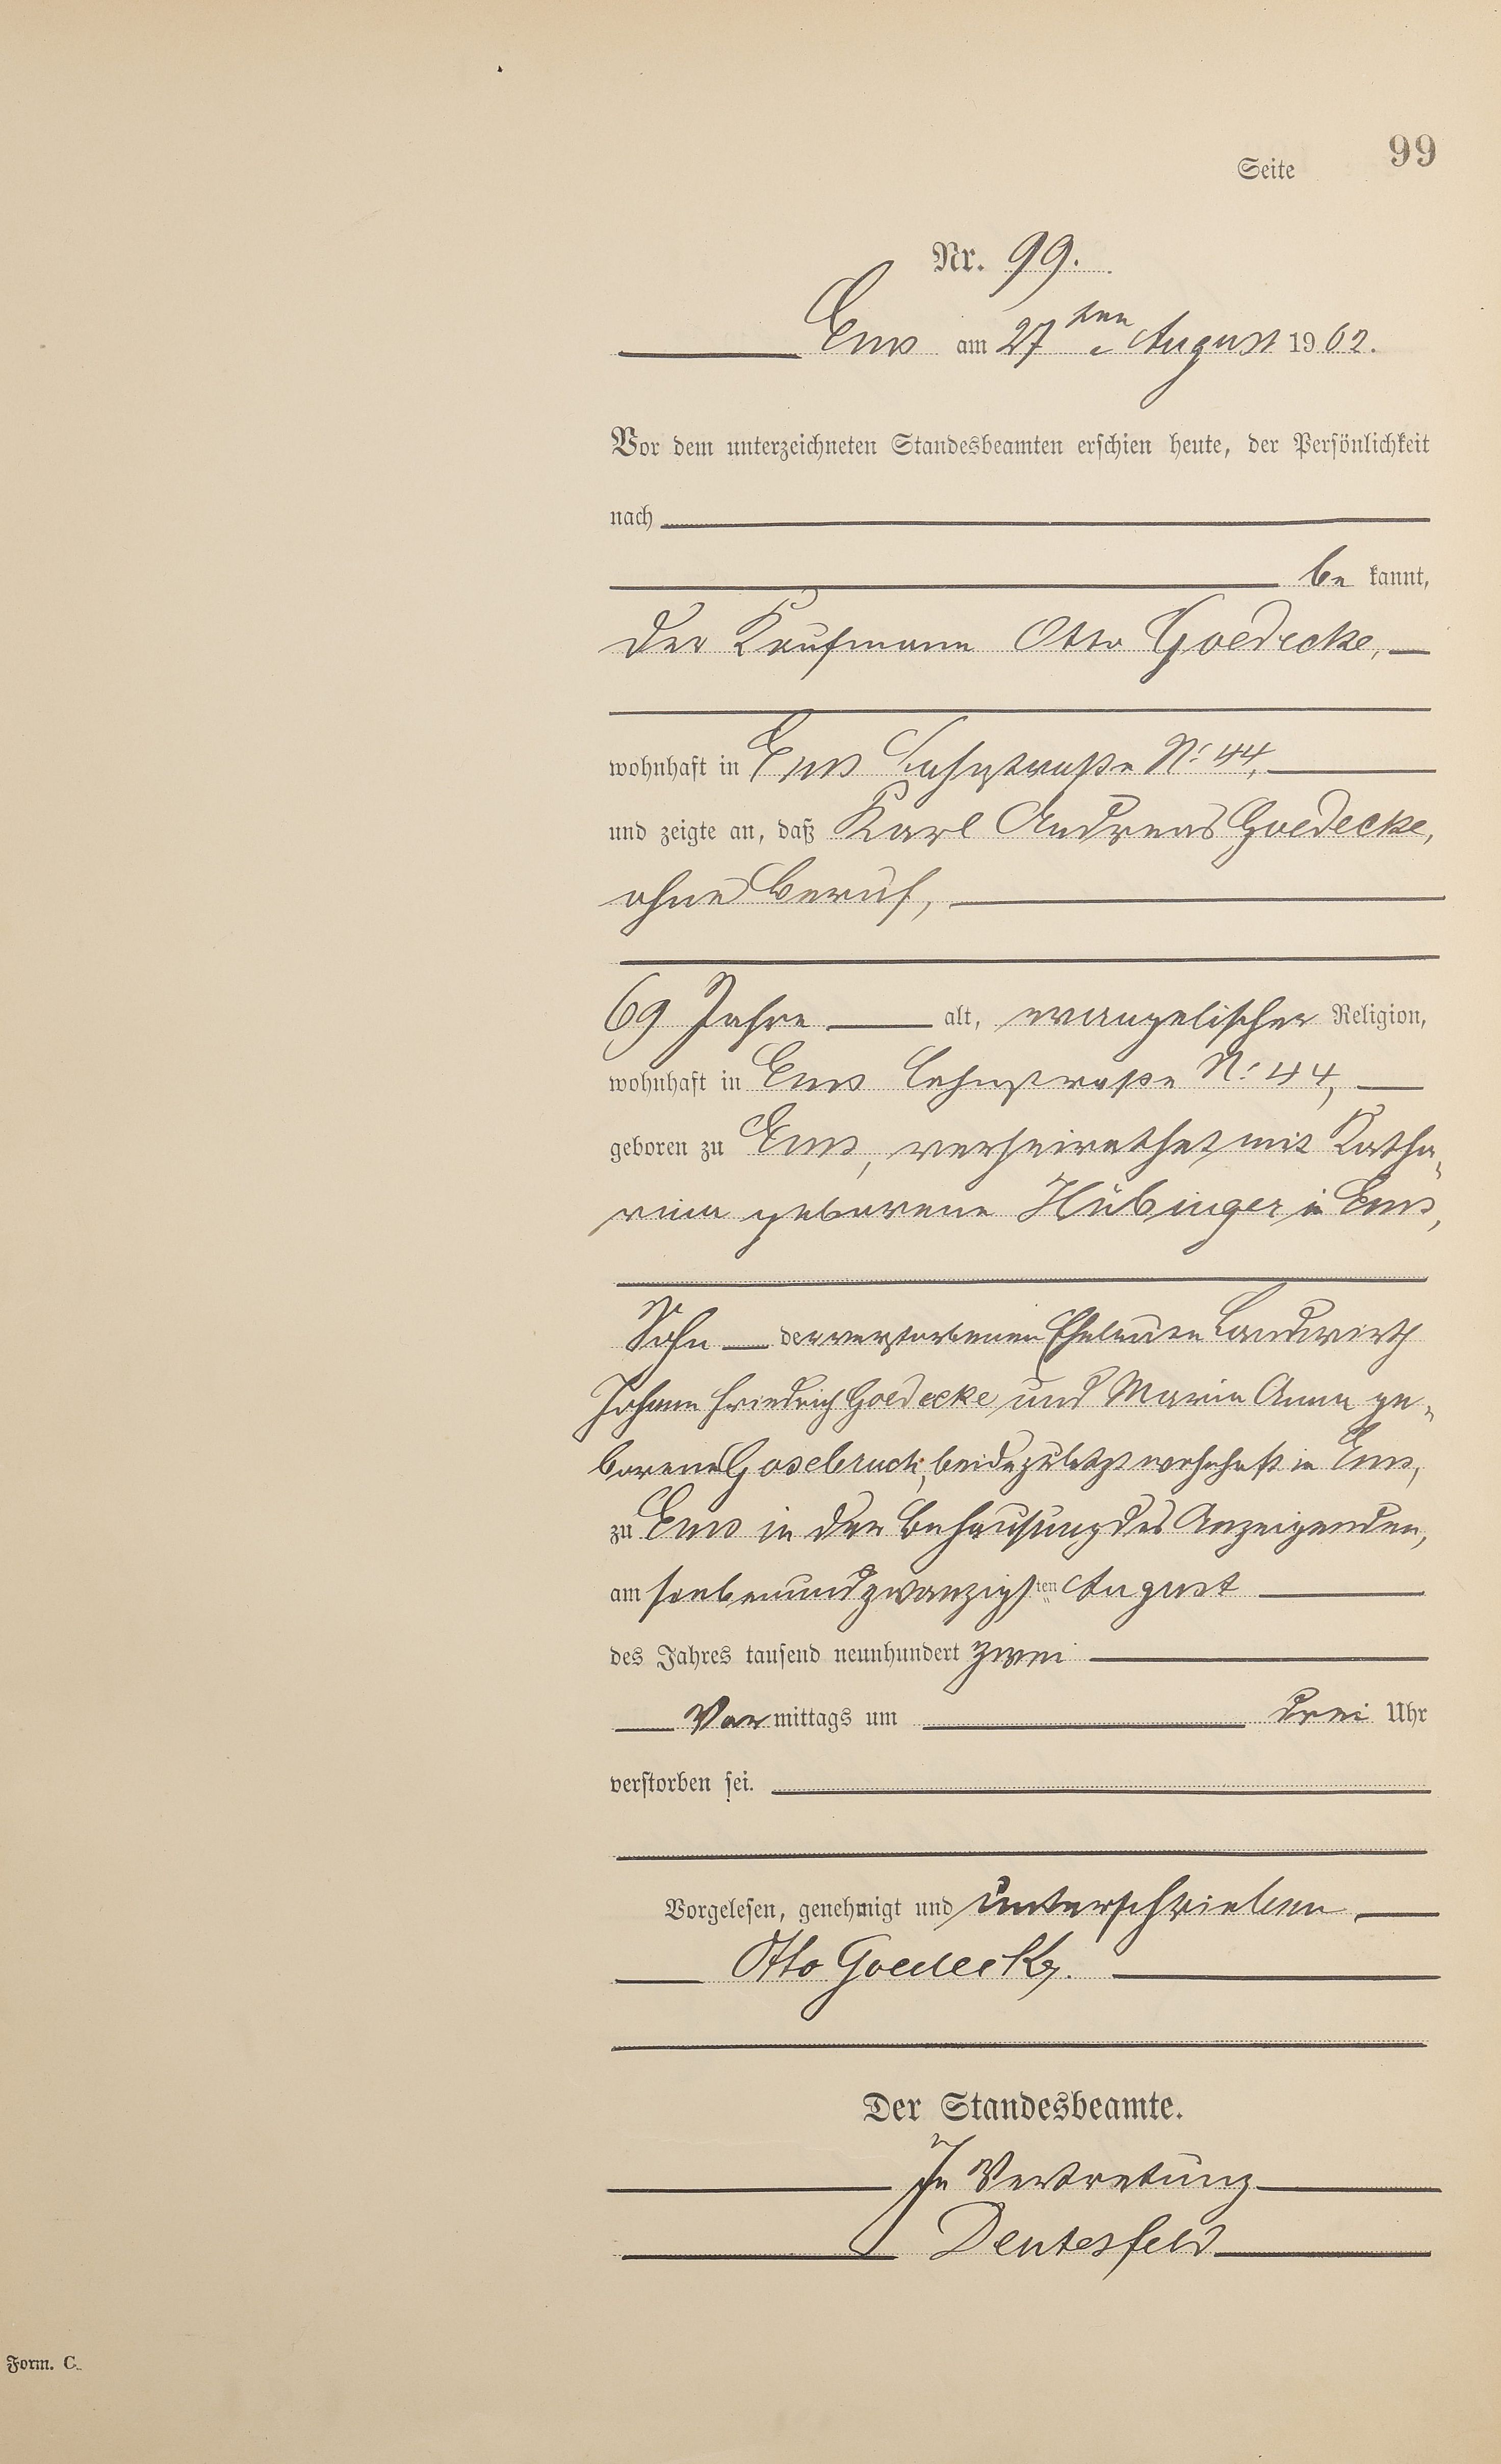 Seite 99
Nr. 99.
Ems am 27ten August 1902.
Vor dem unterzeichneten Standesbeamten erschien heute, der Persönlichkeit
nach
be kannt,
der Kaufmann Otto Goedecke,
wohnhaft in Ems Lahnstraße No 44,
und zeigte an, daß Karl Andreas Goedecke,
ohne Beruf,
69 Jahre alt, evangelischer Religion,
wohnhaft in Ems Lahnstraße No 44,
geboren zu Ems, verheirathet mit Katha-
rina geborene Hübinger in Ems,
Sohn der verstorbenen Eheleuten Landwirth
Johann Friedrich Goedecke und Maria Anna ge-
borene Gosebruch, beide zuletzt wohnhaft in Ems,
zu Ems in der Behausung des Anzeigenden,
am siebenundzwanzigsten August
des Jahres tausend neunhundert zwei
Vor mittags um drei Uhr
verstorben sei.
Vorgelesen, genehmigt und unterschrieben
Otto Goedecke.
Der Standesbeamte.
In Vertretung
Deutesfeld
Form. C.